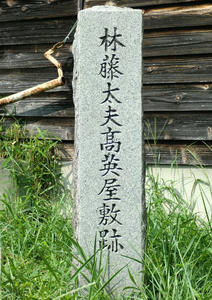 林藤太夫高英屋敷跡